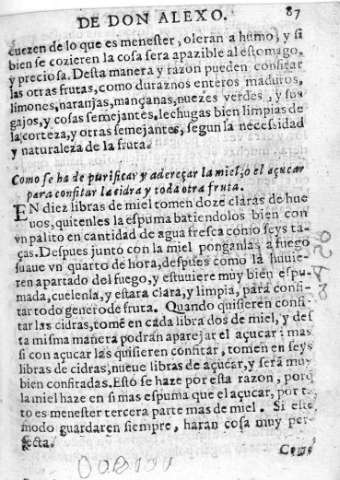 DE DON ALEXO. 87
cuezen de lo que es menester, oleran a humo, y si
bien se cozieren la cosa sera apazible al estomago,
y preciosa. Desta manera y razon pueden confitar
las otras frutas, como duraznos enteros maduros,
limones, naranjas, mançanas, nuezes verdes, y sus
gajos, y cosas semejantes, lechugas bien limpias de
la corteza, y otras semejantes, segun la necessidad
y naturaleza de la fruta.
Como se ha de purificar y adereçar la miel, o el açucar
para confitar la cidra y toda otra fruta.
EN diez libras de miel tomen doze claras de hue
uos, quitenles la espuma batiendolos bien con
vn palito en cantidad de agua fresca como seys ta-
ças. Despues junto con la miel ponganlas a fuego
suaue vn quarto de hora, despues como la huuie-
ren apartado del fuego, y estuuiere muy bien espu-
mada, cuelenla, y estara clara, y limpia, para confi-
tar todo genero de fruta. Quando quisieren confi-
tar las cidras, tomē en cada libra dos de miel, y des
ta misma manera podran aparejar el açucar: mas
si con açucar las quisieren confitar, tomen en seys
libras de cidras, nueue libras de açucar, y sera muy
bien confitadas. Esto se haze por esta razon, porq̄
la miel haze en si mas espuma que el açucar, por tā
to es menester tercera parte mas de miel. Si este
modo guardaren siempre, haran cosa muy per-
fecta.